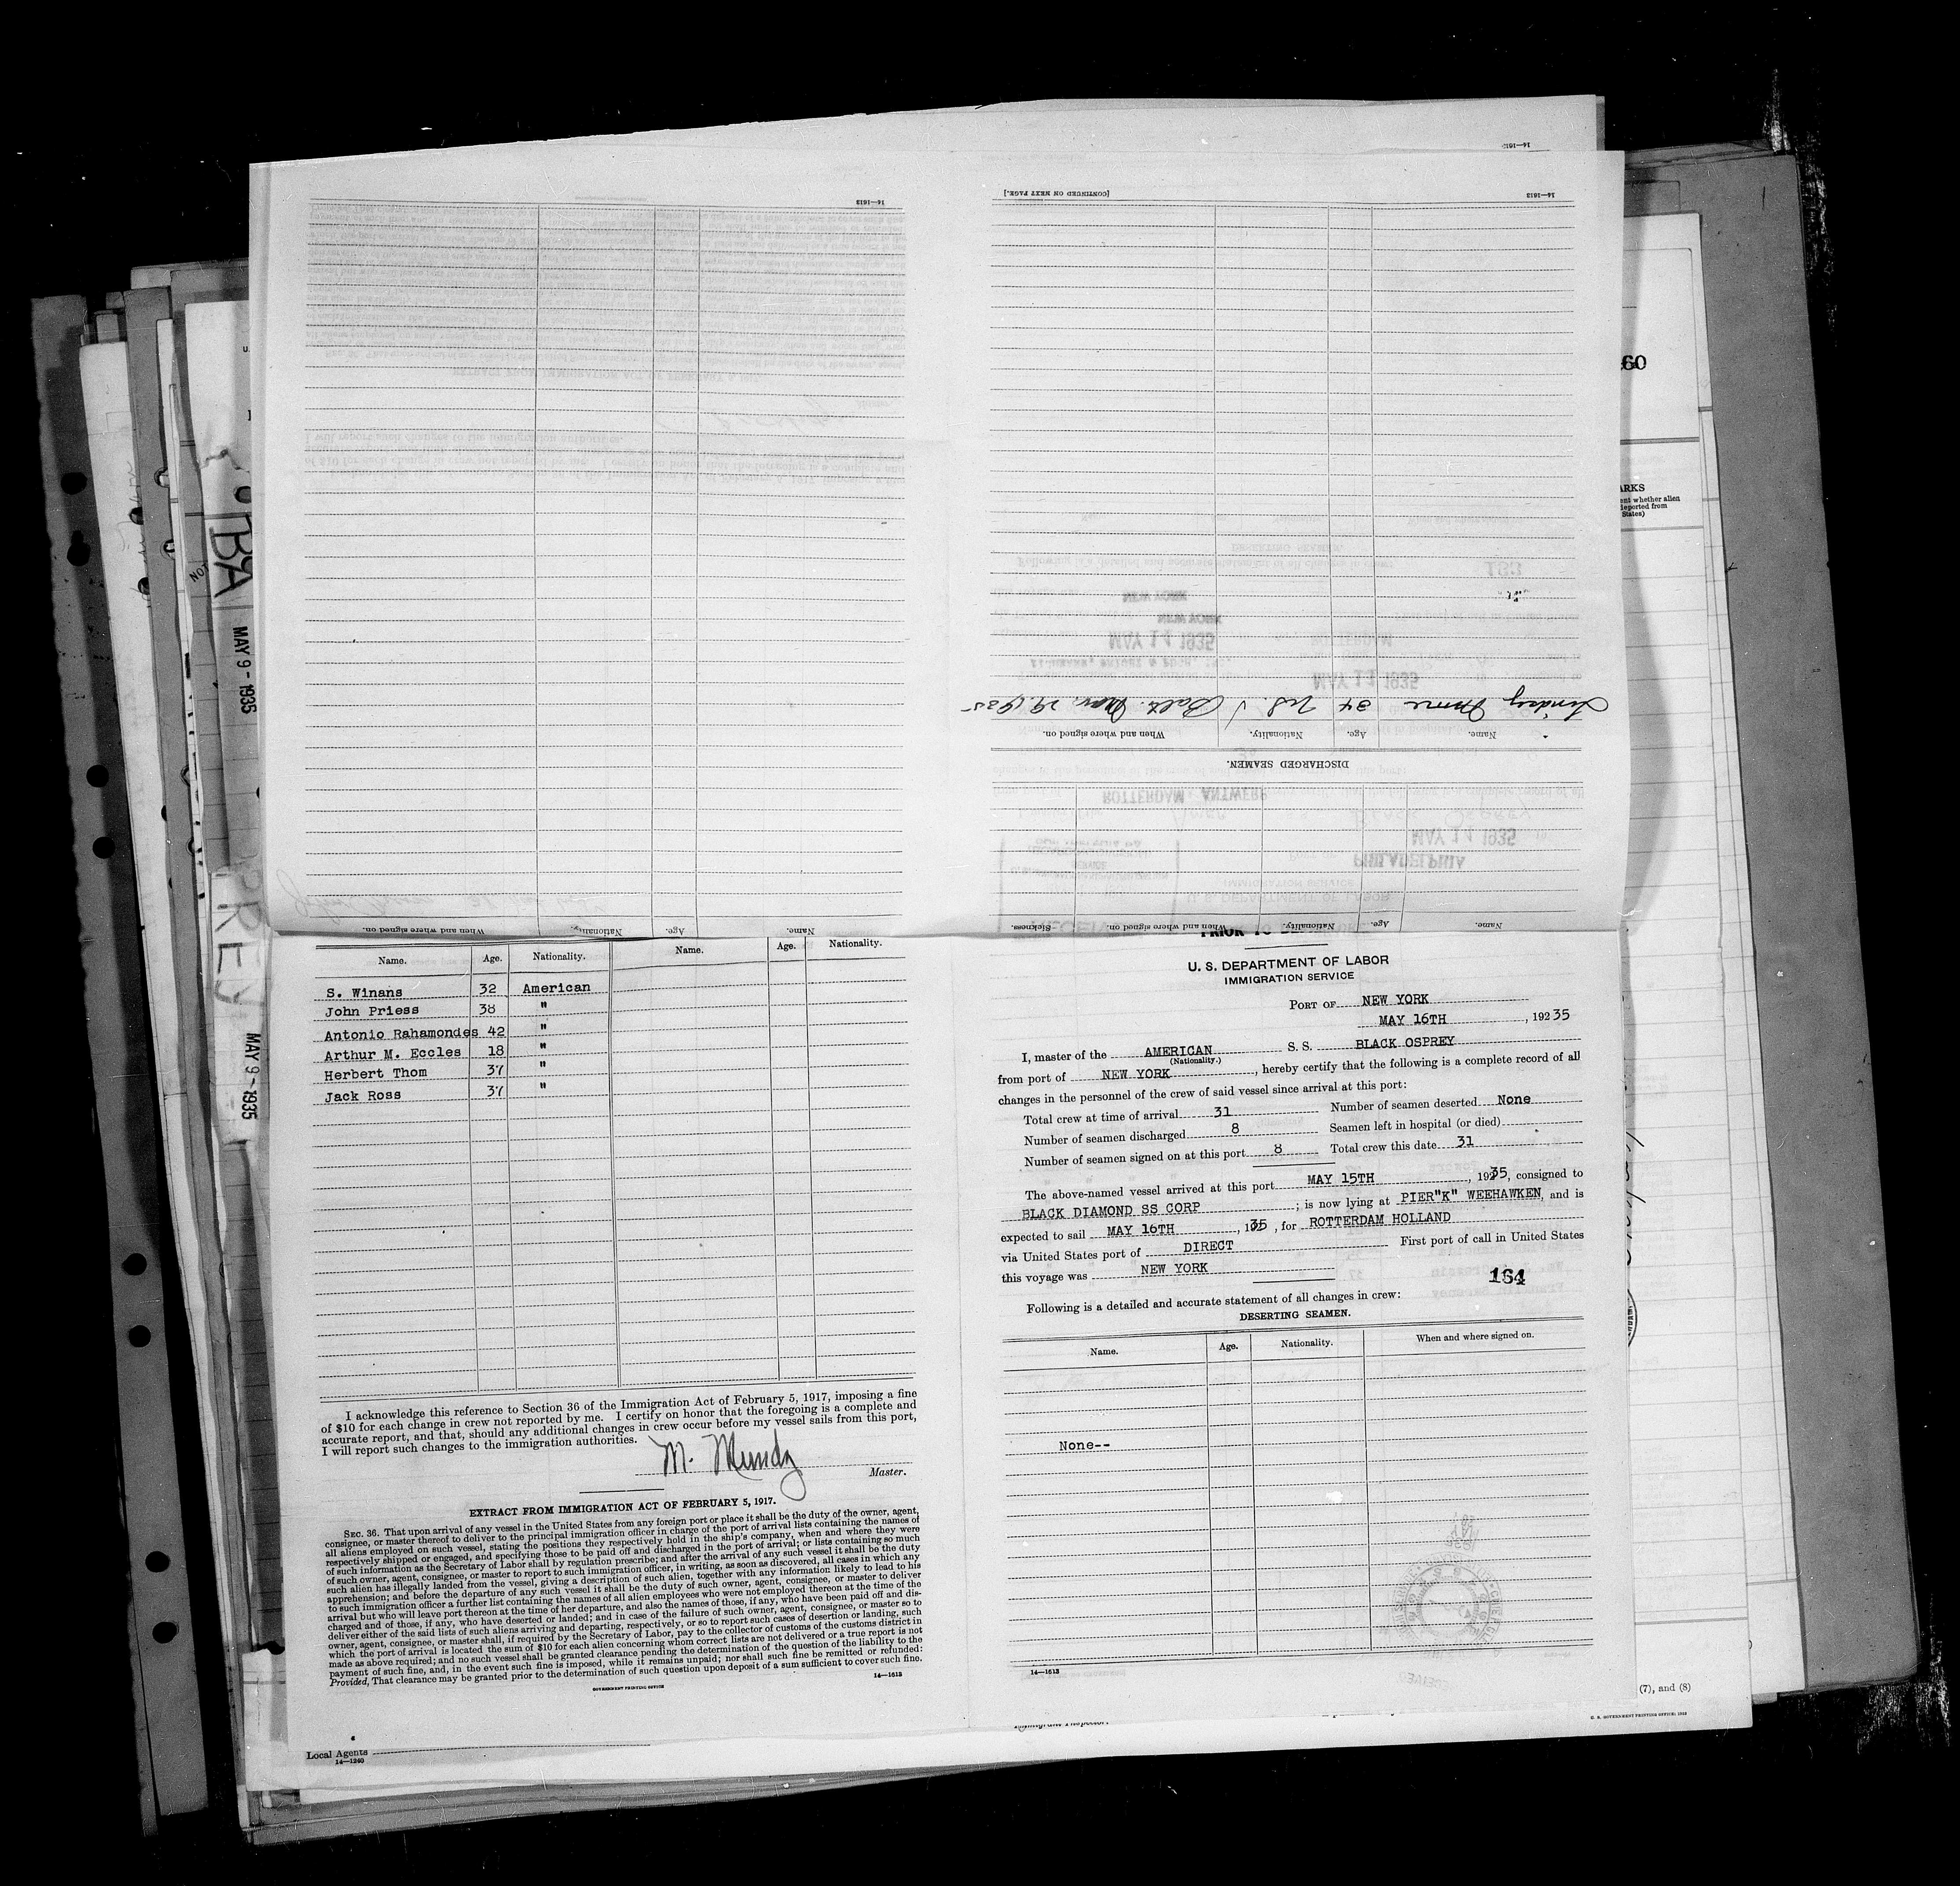 14—1613
[CONTINUED ON NEXT PAGE.]
14—1613
14—1613
DISCHARGED SEAMEN.
Name. Age. Nationality. When and where signed on.
34 Balt. 1935
Name. Age. Nationality. When and where signed on. Sickness.
Name. Age. Nationality. When and where signed on.
MAY 14 1935
NEW YORK
NEW YORK
MAY 14 1935
ROTTERDAM ANTWERP
MAY 14 1935
PHILADELPHIA
183
MAY 9 - 1935
MAY 9 - 1935
60
ARKS
ent whether alien
deported from
States)
Name. Age. Nationality. Name. Age. Nationality.
S. Winans 32 American
John Priess 38 "
Antonio Rahamondes 42 "
Arthur M. Eccles 18 "
Herbert Thom 37 "
Jack Ross 37 "
I acknowledge this reference to Section 36 of the Immigration Act of February 5, 1917, imposing a fine
of $10 for each change in crew not reported by me. I certify on honor that the foregoing is a complete and
accurate report, and that, should any additional changes in crew occur before my vessel sails from this port,
I will report such changes to the immigration authorities.
M. Mundy
Master.
EXTRACT FROM IMMIGRATION ACT OF FEBRUARY 5, 1917.
SEC. 36. That upon arrival of any vessel in the United States from any foreign port or place it shall be the duty of the owner, agent,
consignee, or master thereof to deliver to the principal immigration officer in charge of the port of arrival lists containing the names of
all aliens employed on such vessel, stating the positions they respectively hold in the ship's company, when and where they were
respectively shipped or engaged, and specifying those to be paid off and discharged in the port of arrival; or lists containing so much
of such information as the Secretary of Labor shall by regulation prescribe; and after the arrival of any such vessel it shall be the duty
of such owner, agent, consignee, or master to report to such immigration officer, in writing, as soon as discovered, all cases in which any
such alien has illegally landed from the vessel, giving a description of such alien, together with any information likely to lead to his
apprehension; and before the departure of any such vessel it shall be the duty of such owner, agent, consignee, or master to deliver
to such immigration officer a further list containing the names of all alien employees who were not employed thereon at the time of the
arrival but who will leave port thereon at the time of her departure, and also the names of those, if any, who have been paid off and dis-
charged and of those, if any, who have deserted or landed; and in case of the failure of such owner, agent, consignee, or master so to
deliver either of the said lists of such aliens arriving and departing, respectively, or so to report such cases of desertion or landing, such
owner, agent, consignee, or master shall, if required by the Secretary of Labor, pay to the collector of customs of the customs district in
which the port of arrival is located the sum of $10 for each alien concerning whom correct lists are not delivered or a true report is not
made as above required; and no such vessel shall be granted clearance pending the determination of the question of the liability to the
payment of such fine, and, in the event such fine is imposed, while it remains unpaid; nor shall such fine be remitted or refunded:
Provided, That clearance may be granted prior to the determination of such question upon deposit of a sum sufficient to cover such fine.
GOVERNMENT PRINTING OFFICE
14—1613
Local Agents
14—1240
U. S. DEPARTMENT OF LABOR
IMMIGRATION SERVICE
PORT OF NEW YORK
MAY 16TH, 19235
I, master of the AMERICAN S. S. BLACK OSPREY
(Nationality.)
from port of NEW YORK, hereby certify that the following is a complete record of all
changes in the personnel of the crew of said vessel since arrival at this port:
Total crew at time of arrival 31 Number of seamen deserted None
Number of seamen discharged 8 Seamen left in hospital (or died)
Number of seamen signed on at this port 8 Total crew this date 31
The above-named vessel arrived at this port MAY 15TH, 1935, consigned to
BLACK DIAMOND SS CORP; is now lying at PIER"K" WEEHAWKEN, and is
expected to sail MAY 16TH, 1935, for ROTTERDAM HOLLAND
via United States port of DIRECT First port of call in United States
this voyage was NEW YORK
164
Following is a detailed and accurate statement of all changes in crew:
DESERTING SEAMEN.
Name. Age. Nationality. When and where signed on.
None--
14—1613
(7), and (8)
U. S. GOVERNMENT PRINTING OFFICE: